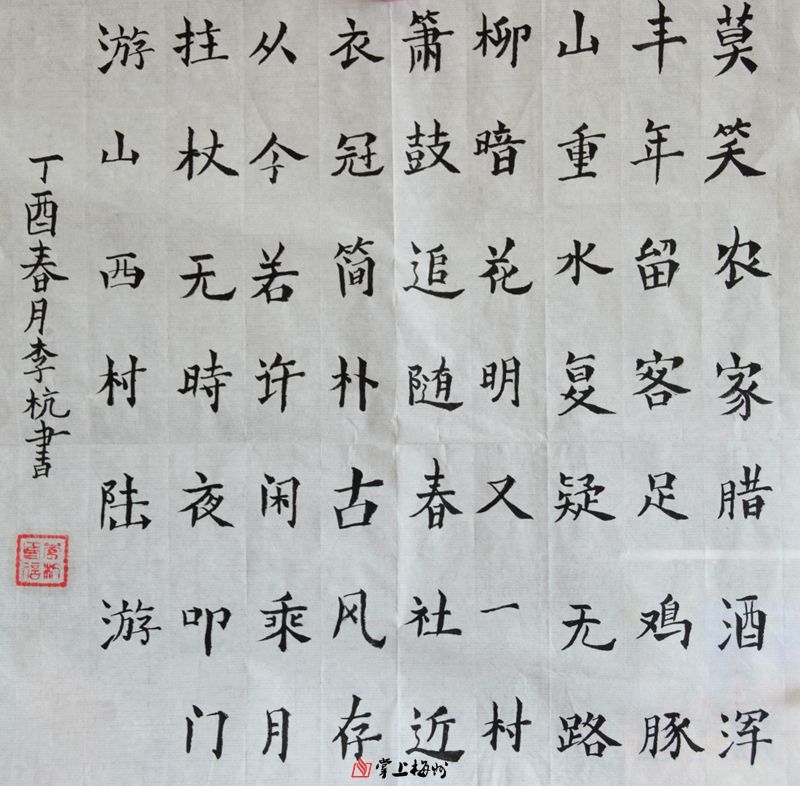 莫笑农家腊酒浑
丰年留客足鸡豚
山重水复疑无路
柳暗花明又一村
箫鼓追随春社近
衣冠简朴古风存
从今若许闲乘月
拄杖无時夜叩门
游山西村陆游
丁酉春月李杭書
掌上梅州